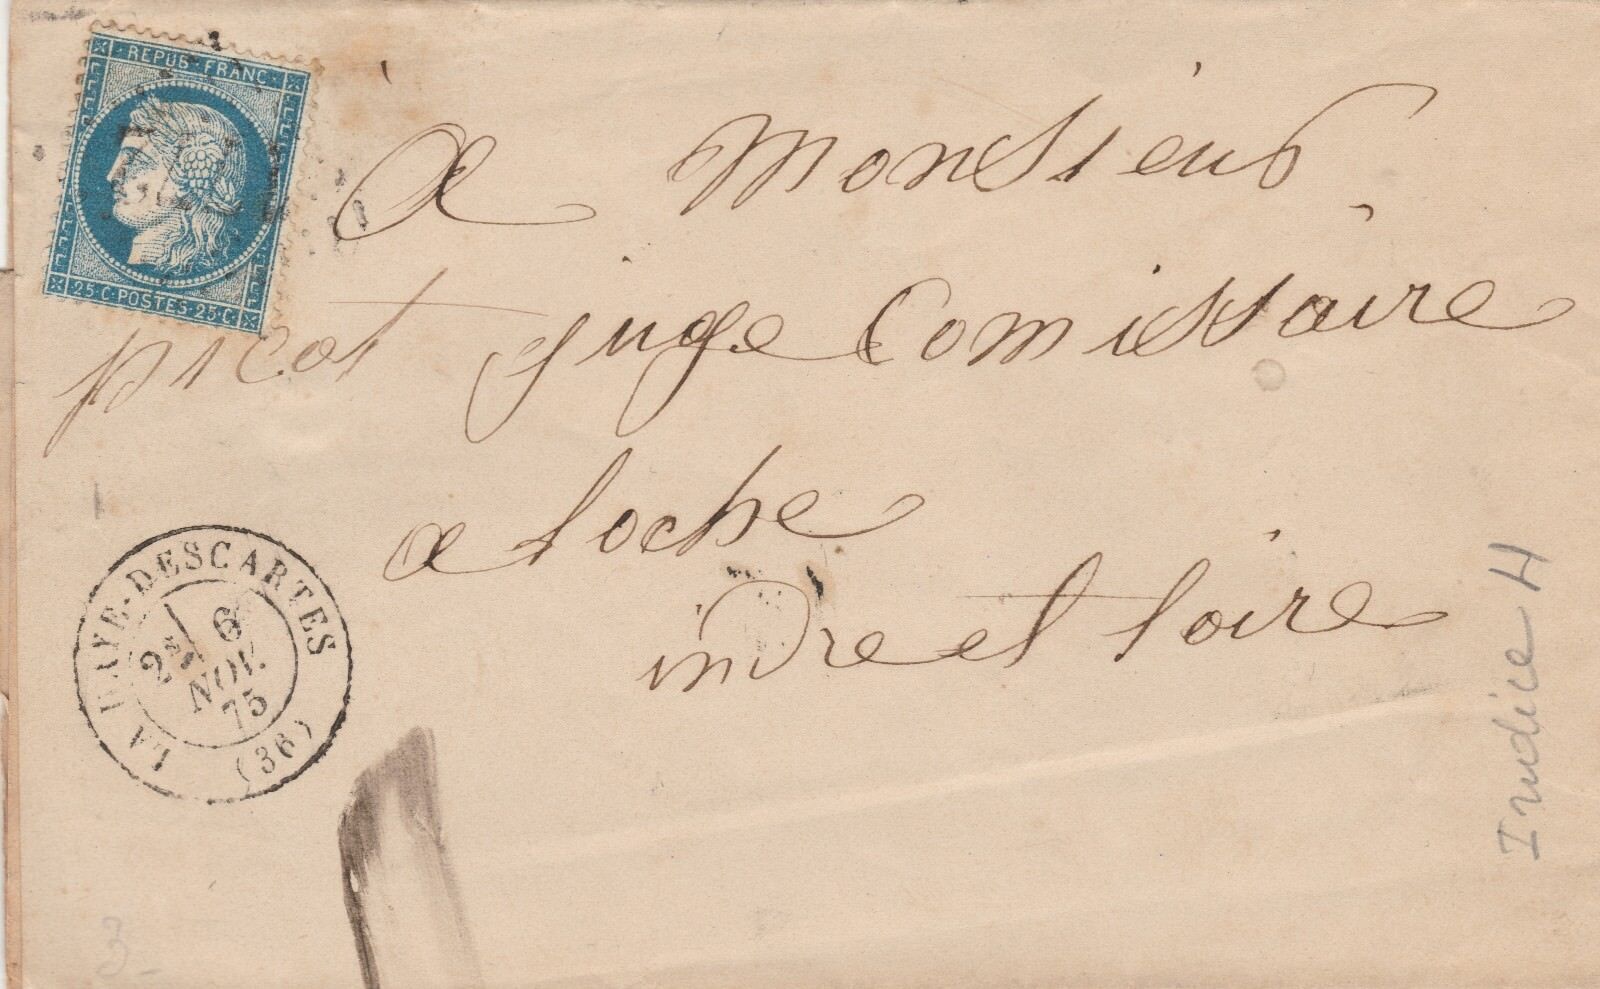 REPUB·FRANC·
25·C·POSTES·25·C·
a Monsieur
picot juge Comissaire
a loche
indre et loire
LA HAYE-DESCARTES
2E 6
NOV.
75
(36)
Indice H
3